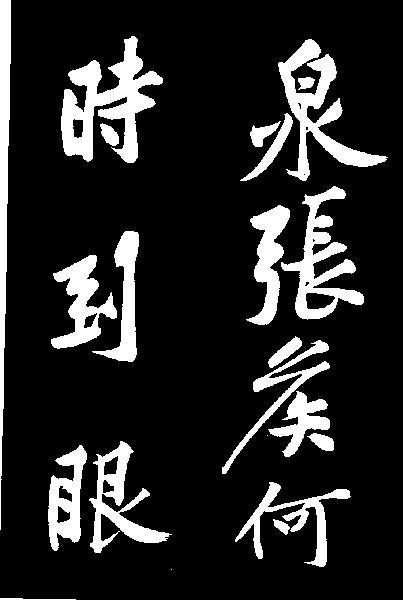 泉張侯何
時到眼